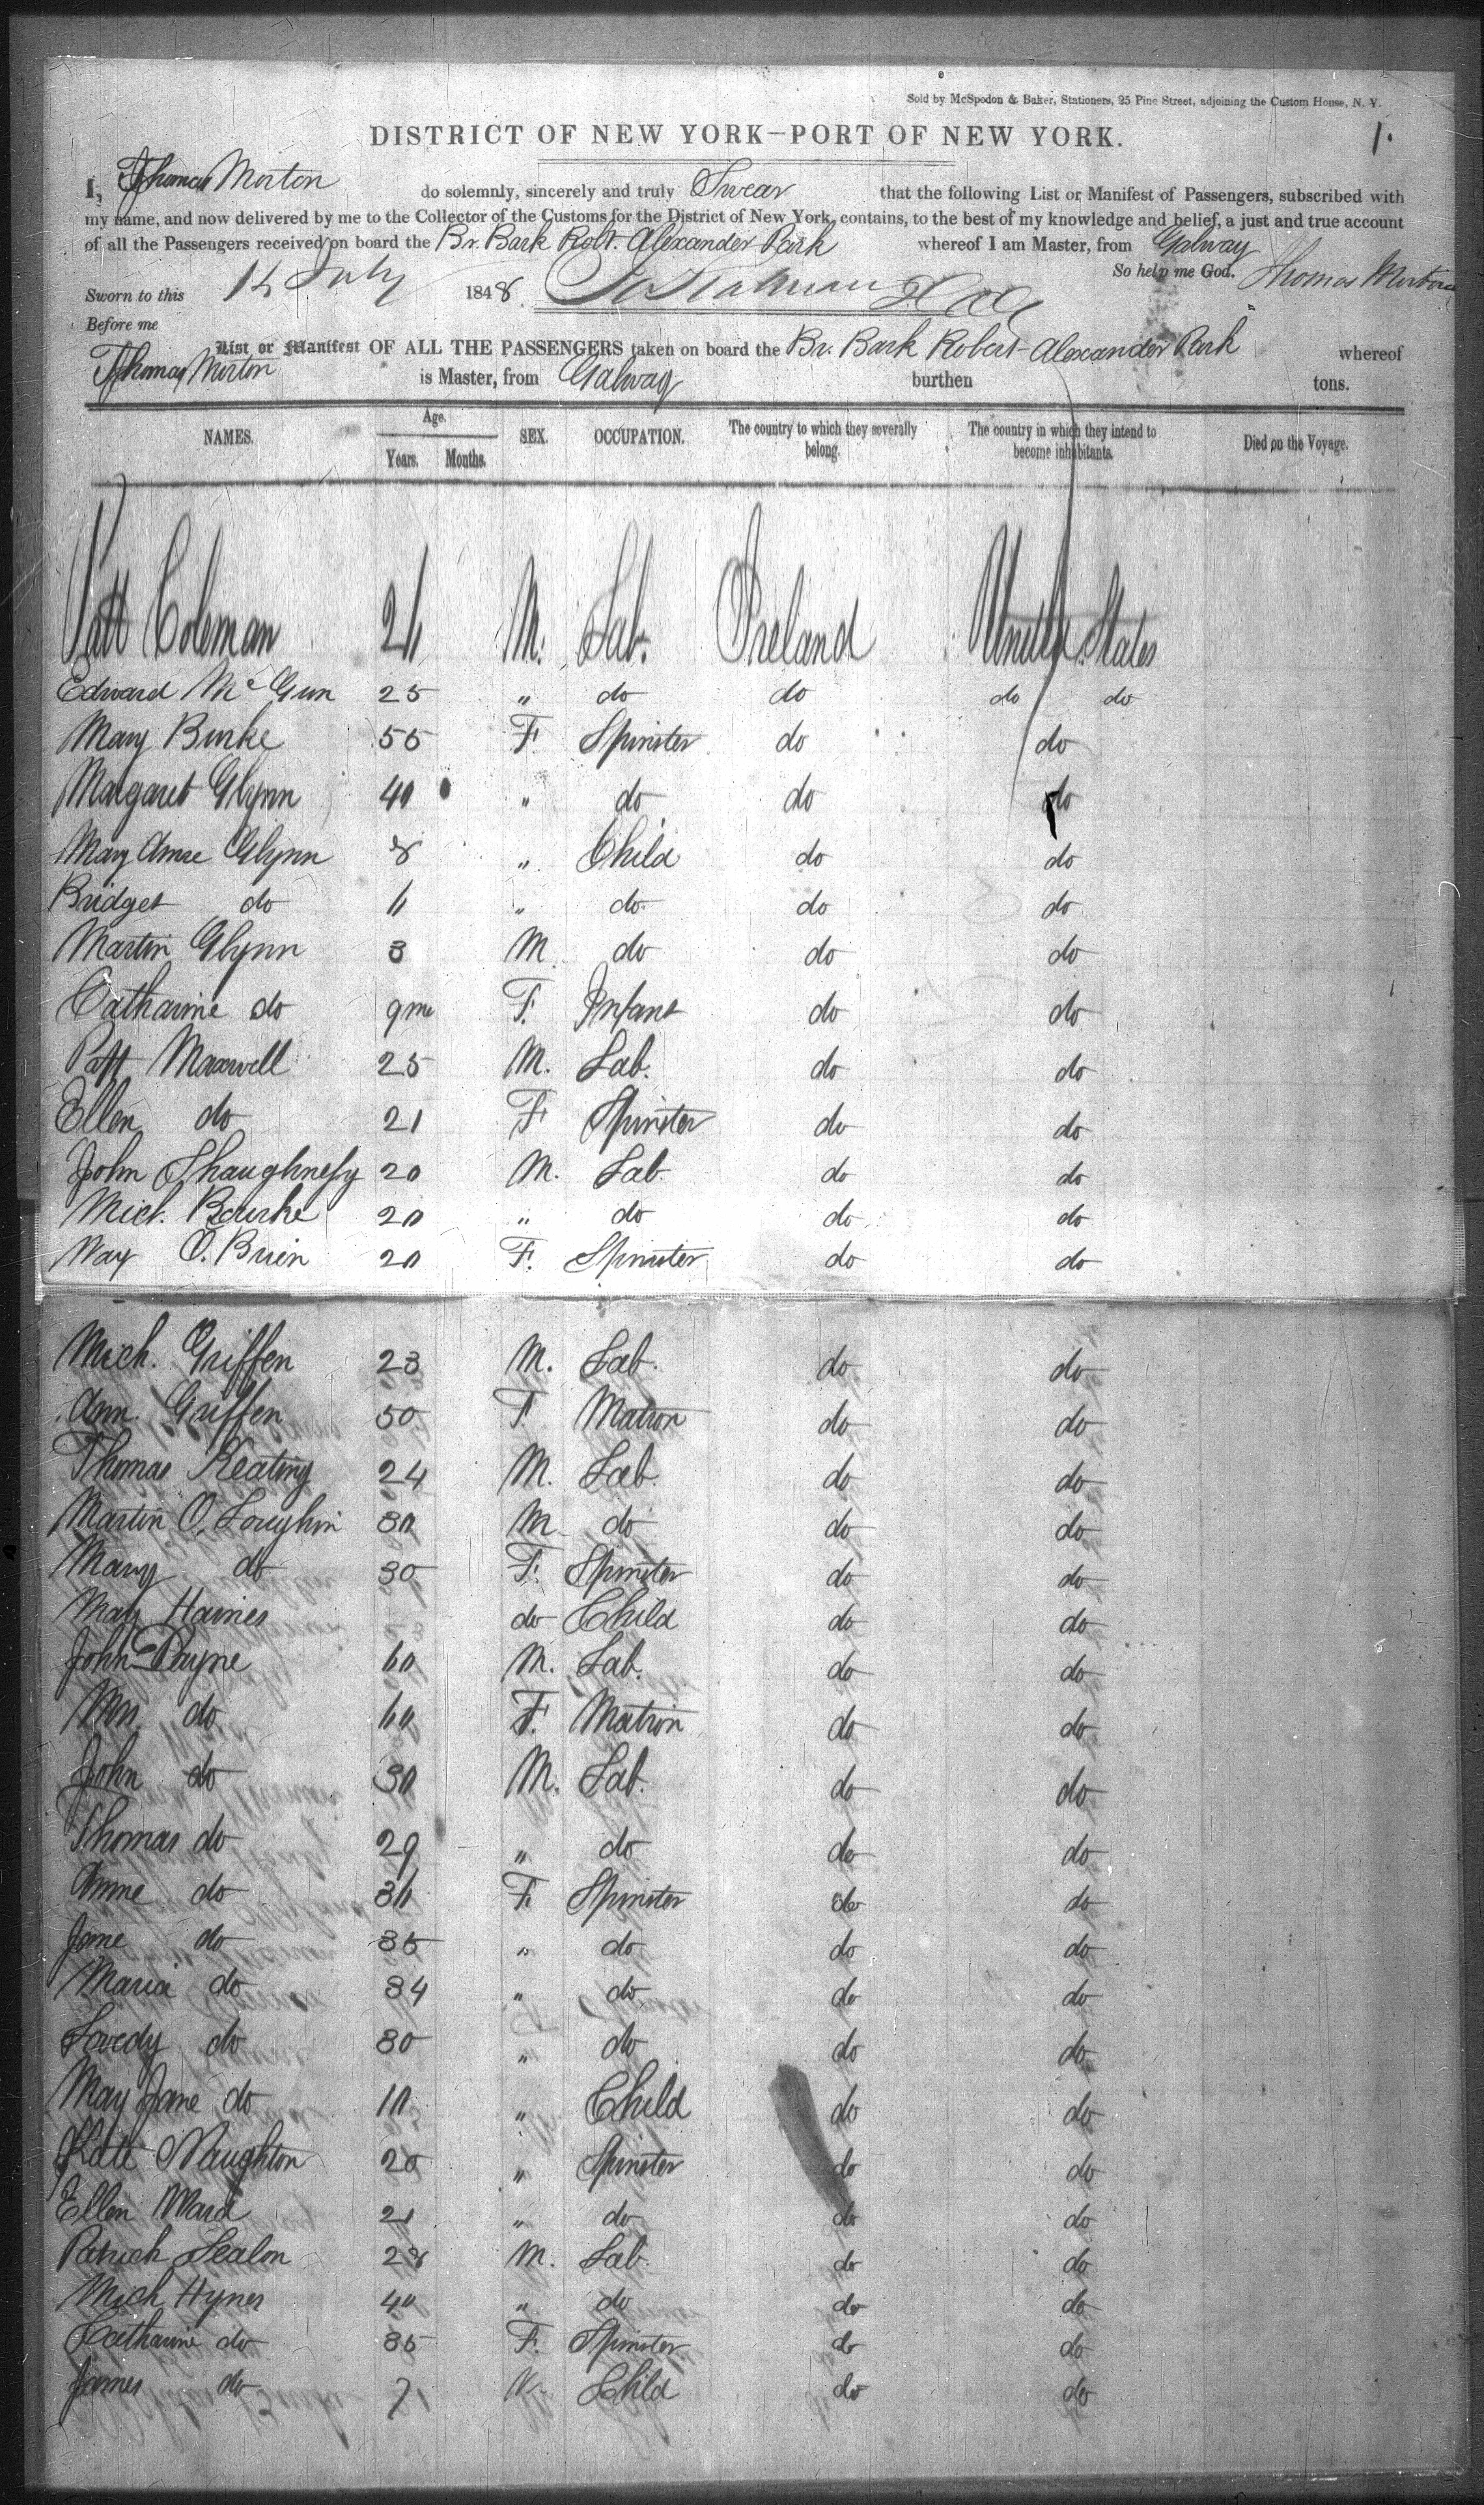 Sold by McSpedon & Baker, Stationers, 25 Pine Street, adjoining the Custom House, N. Y.
1.
DISTRICT OF NEW YORK—PORT OF NEW YORK.
I, Thomas Morton do solemnly, sincerely and truly Swear that the following List or Manifest of Passengers, subscribed with
my name, and now delivered by me to the Collector of the Customs for the District of New York, contains, to the best of my knowledge and belief, a just and true account
of all the Passengers received on board the Br. Bark Robt. Alexander Park whereof I am Master, from Galway
So help me God. Thomas Morton
Sworn to this 14 July 1848
Before me
List or Manifest OF ALL THE PASSENGERS taken on board the Br. Bark Robert Alexander Park whereof
Thomas Morton is Master, from Galway burthen tons.
NAMES. Age. Years. Months. SEX. OCCUPATION. The country to which they severally belong. The country in which they intend to become inhabitants. Died on the Voyage.
Patt Coleman M. Lab. Ireland United States
Edward McGun 25 " do do do do
Mary Burke 55 F. Spinster do do
Margaret Glynn 40 " do do do
Mary Anne Glynn 8 " Child do do
Bridget do " do do do
Martin Glynn 3 M do do do
Catharine do 9 mo F. Infant do do
Patt Maxwell 25 M. Lab. do do
Ellen do 21 F Spinster do do
John Shaughnessy 20 M. Lab. do do
Mich. Bourke 20 " do do do
May O. Brien 20 F. Spinster do do
Mich. Griffen 23 M. Lab. do do
Ann. Griffen 50 F Matron do do
Thomas Keating 24 M. Lab. do do
Martin O. Loughin 30 M do do do
Mary do 30 F. Spinster do do
May Haines do Child do do
John Payne 60 M. Lab. do do
Mrs. do 60 F. Matron do do
John do 30 M. Lab. do do
Thomas do 29 " do do do
Anne do F. Spinster do do
Jane do 35 " do do do
Maria do 34 " do do do
Lovedy do 30 " do do do
May Jane do 10 " Child do do
Kate Naughton 20 " Spinster do do
Ellen Ward 21 " do do do
Patrick Sealon 28 M. Lab. do do
Mich Hynes 40 " do do do
Catharine do 35 F. Spinster do do
James do 7 M. Child do do